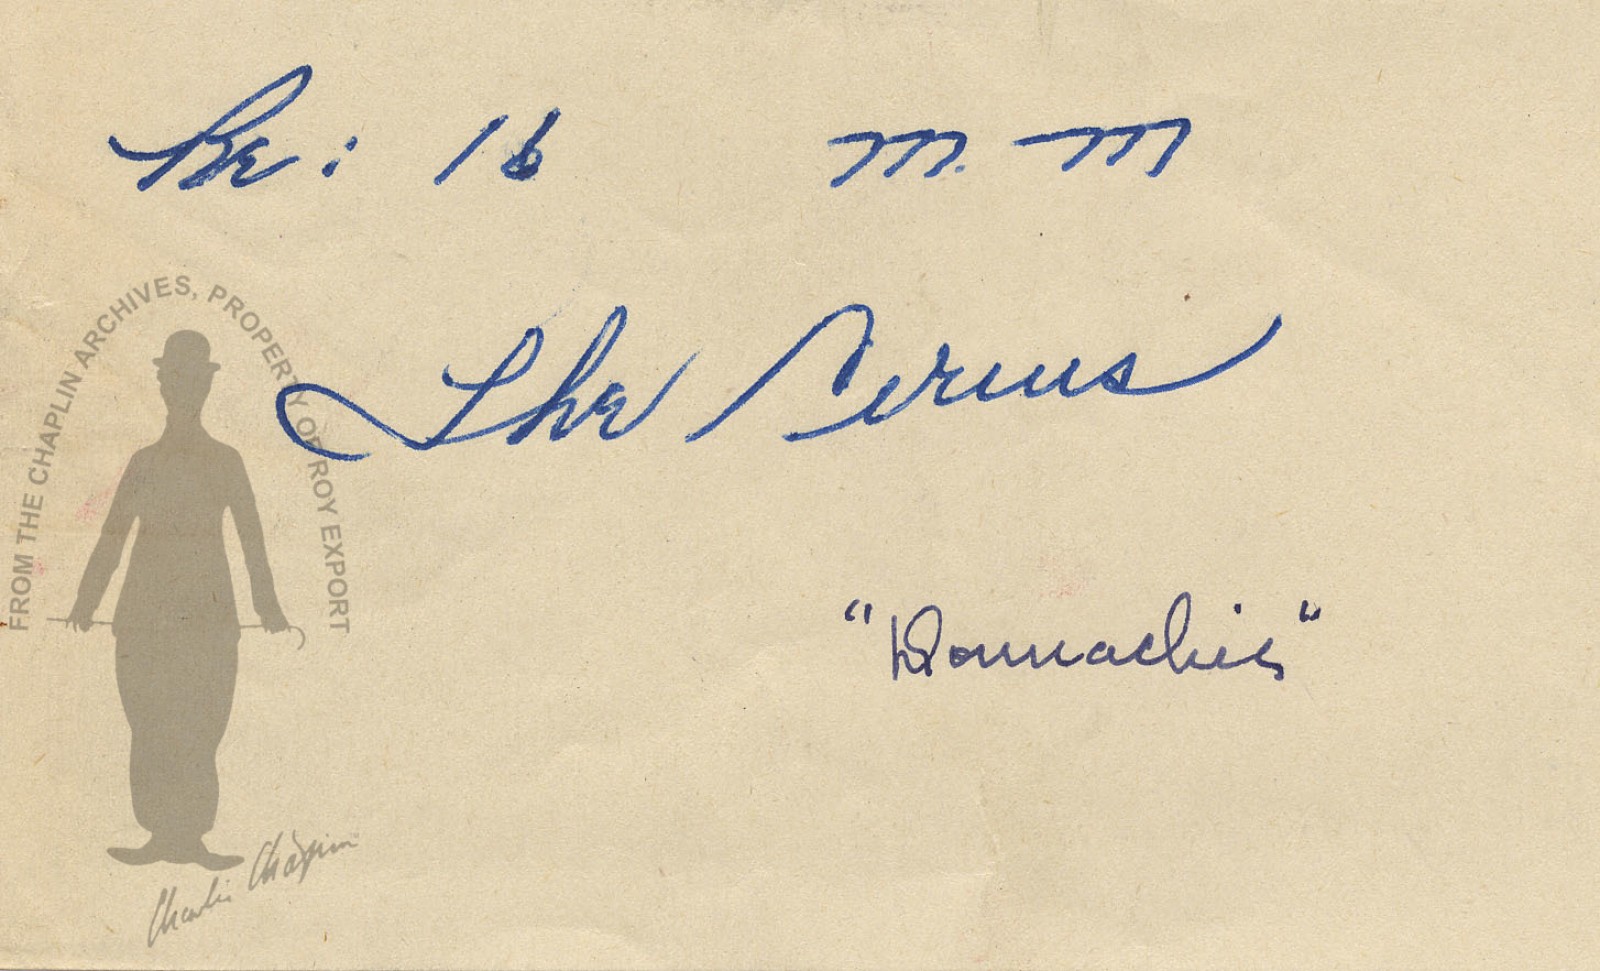 Re: 16 M.M
The Circus
FROM THE CHAPLIN ARCHIVES, PROPERTY OF ROY EXPORT
Charlie Chaplin